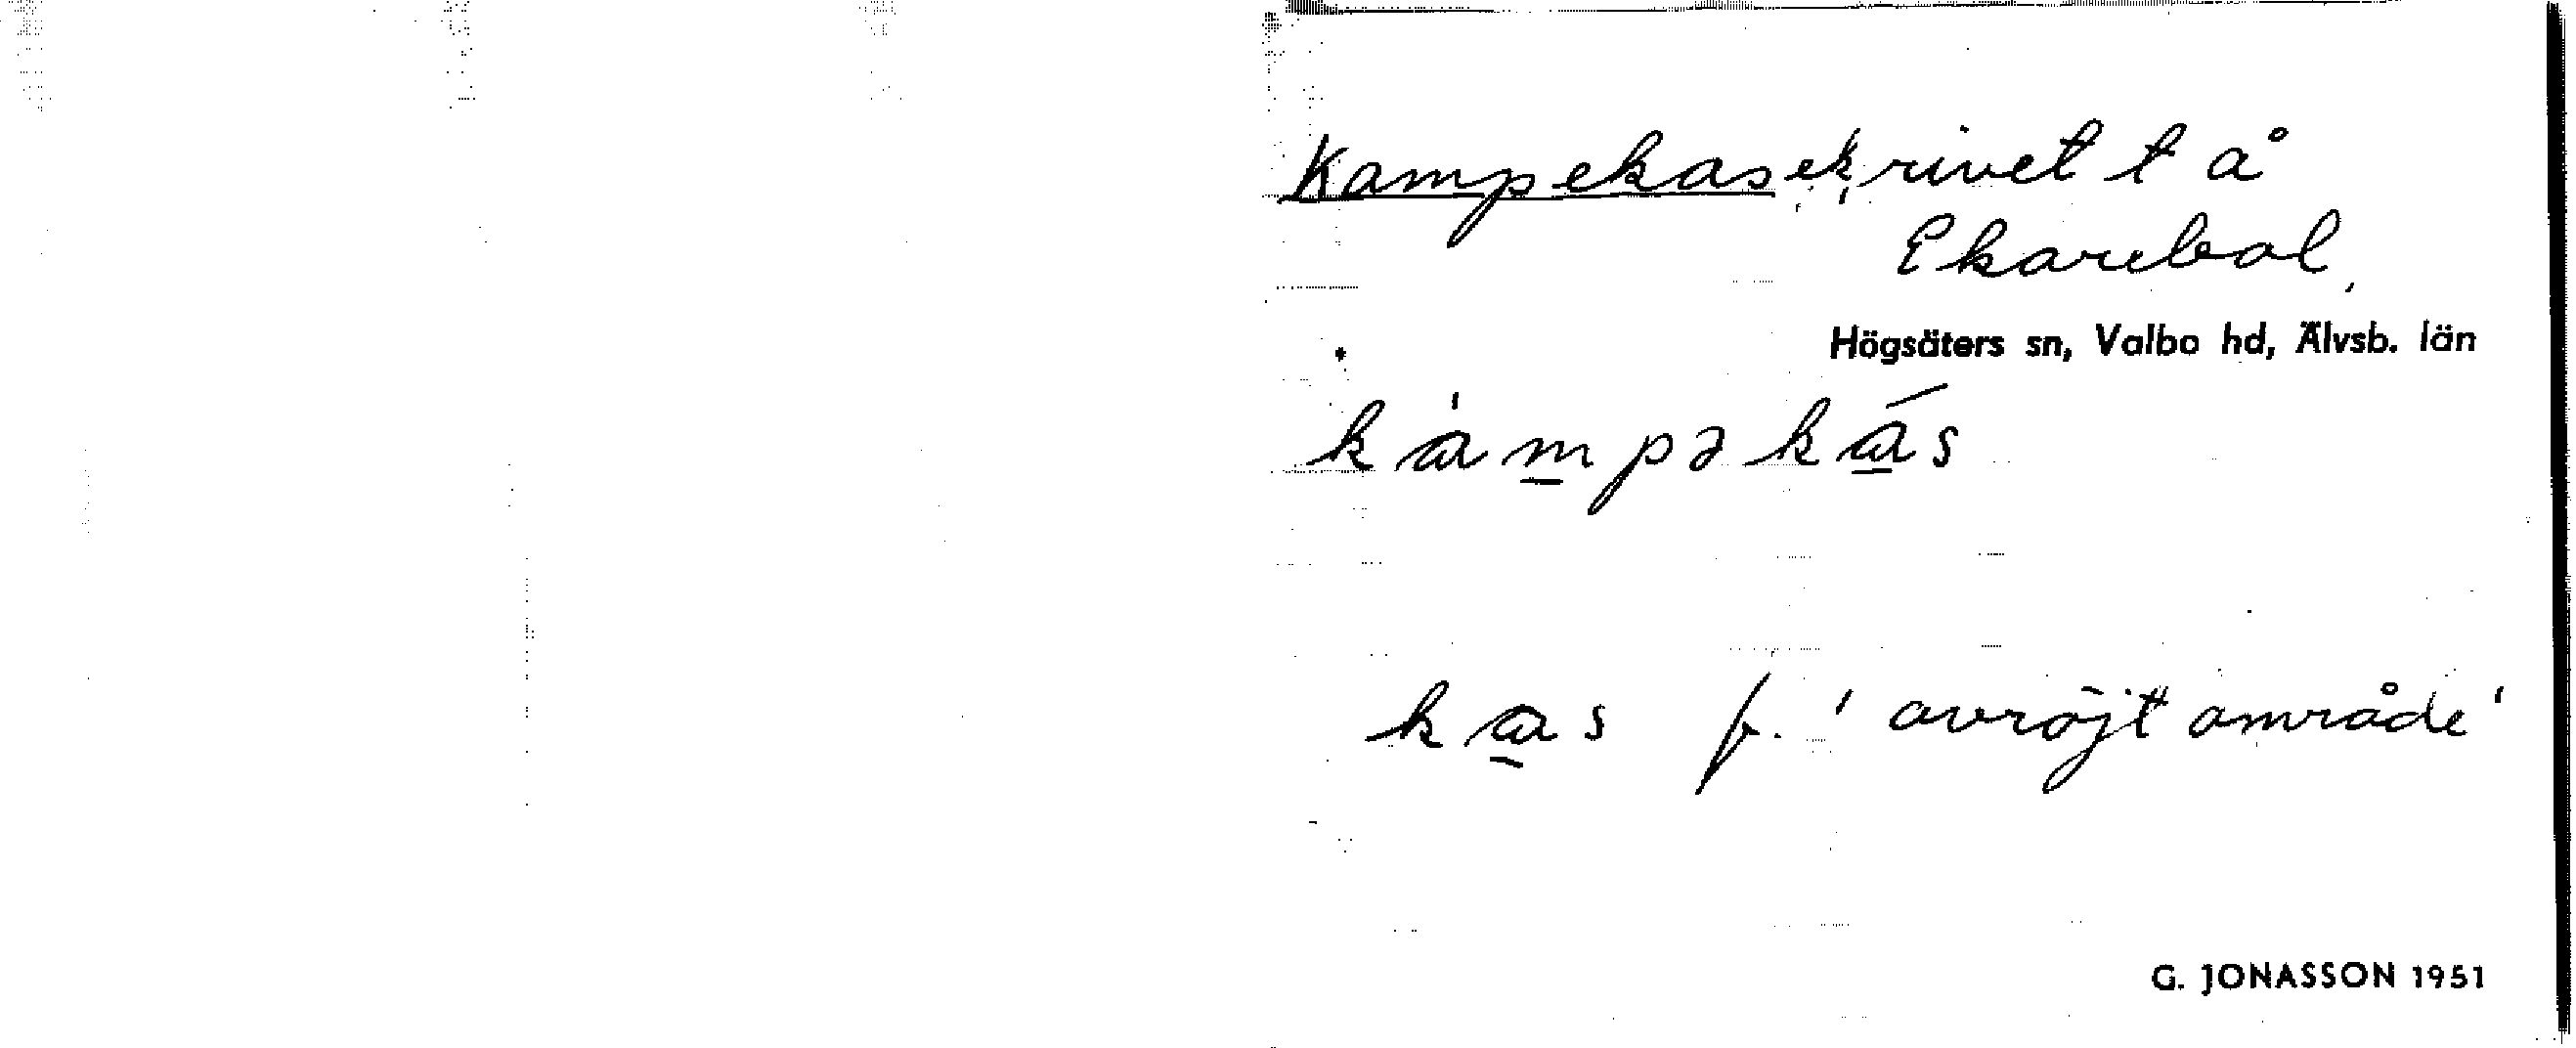 Kampekas ek, rivet t å
Ekarebol,
Högsäters sn, Valbo hd, Älvsb. län
kàmpəkás
kas f. 'avröjt område'
G. JONASSON 1951